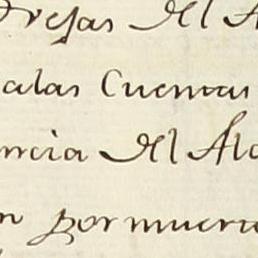 resas del A
alas Cuentas
ncia del Alc
n por muert